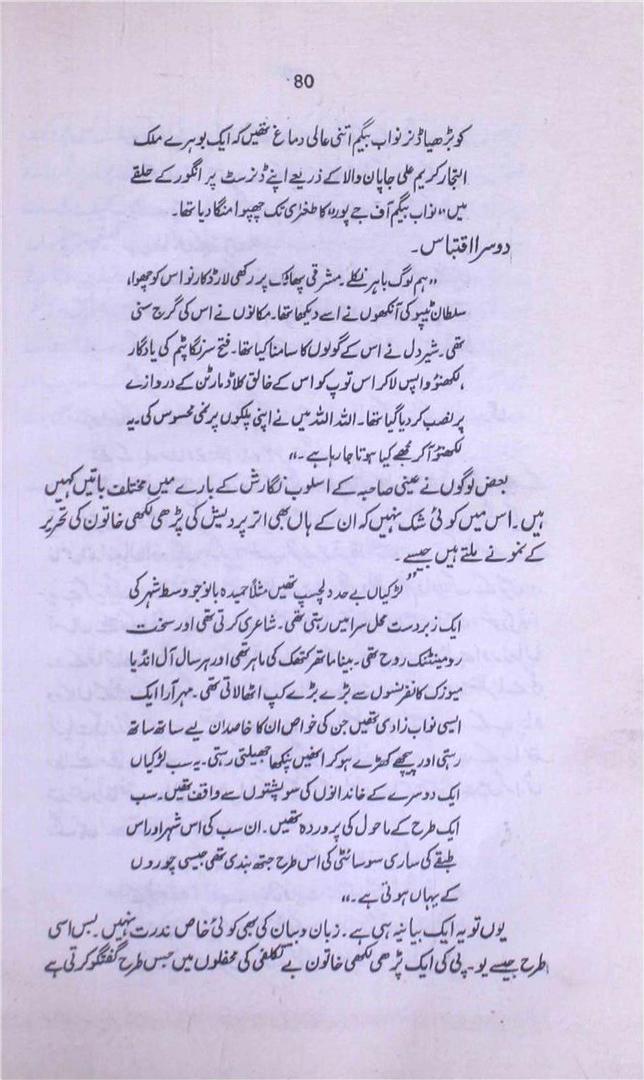 80
کو بڑھیا ڈنر نواب بیگم اتنی عالی دماغ تھیں کہ ایک بوہرے ملک
التجار کریم علی جاپان والا کے ذریعے اپنے ڈنر سٹ پر انگور کے حلقے
میں "نواب بیگم آف جے پور" کا طغریٰ تک چھپوا منگا دیا تھا۔
دوسرا اقتباس۔
"ہم لوگ باہر نکلے۔ مشرقی پھاٹک پر رکھی لارڈ کارنواس کو چھوا،
سلطان ٹیپو کی آنکھوں نے اسے دیکھا تھا۔ مکانوں نے اس کی گرج سنی
تھی۔ شیر دل نے اس کے گولوں کا سامنا کیا تھا۔ فتح سرنگا پٹم کی یادگار
،لکھنؤ واپس لا کر اس توپ کو اس کے خالق کلاڈ مارٹن کے دروازے
پر نصب کر دیا گیا تھا۔ اللہ اللہ میں نے اپنی پلکوں پر نمی محسوس کی۔ یہ
لکھنؤ آ کر مجھے کیا ہوتا جا رہا ہے۔"
بعض لوگوں نے عینی صاحبہ کے اسلوب نگارش کے بارے میں مختلف باتیں کہیں
ہیں۔ اس میں کوئی شک نہیں کہ ان کے ہاں بھی اتر پردیش کی پڑھی لکھی خاتون کی تحریر
کے نمونے ملتے ہیں جیسے۔
"لڑکیاں بے حد دلچسپ تھیں مثلاً حمیدہ بانو جو وسط شہر کی
ایک زبردست محل سرا میں رہتی تھی۔ شاعری کرتی تھی اور سخت
رومینٹک روح تھی۔ بینا ماتھر کتھک کی ماہر تھی اور ہر سال آل انڈیا
میوزک کانفرنسوں سے بڑے بڑے کپ اٹھا لاتی تھی۔ مہر آرا ایک
ایسی نواب زادی تھیں جن کی خواص ان کا خاصدان لیے ساتھ ساتھ
رہتی اور پیچھے کھڑے ہو کر انھیں پنکھا جھیلتی رہتی۔ یہ سب لڑکیاں
ایک دوسرے کے خاندانوں کی سو پشتوں سے واقف تھیں۔ سب
ایک طرح کے ماحول کی پروردہ تھیں۔ ان سب کی اس شہر اور اس
طبقے کی ساری سوسائٹی کی اس طرح جتھ بندی تھی جیسی چوروں
کے یہاں ہوتی ہے۔"
یوں تو یہ ایک بیانیہ ہی ہے۔ زبان و بیان کی بھی کوئی خاص ندرت نہیں۔ بس اسی
طرح جیسے یو۔پی کی ایک پڑھی لکھی خاتون بے تکلفی کی محفلوں میں جس طرح گفتگو کرتی ہے